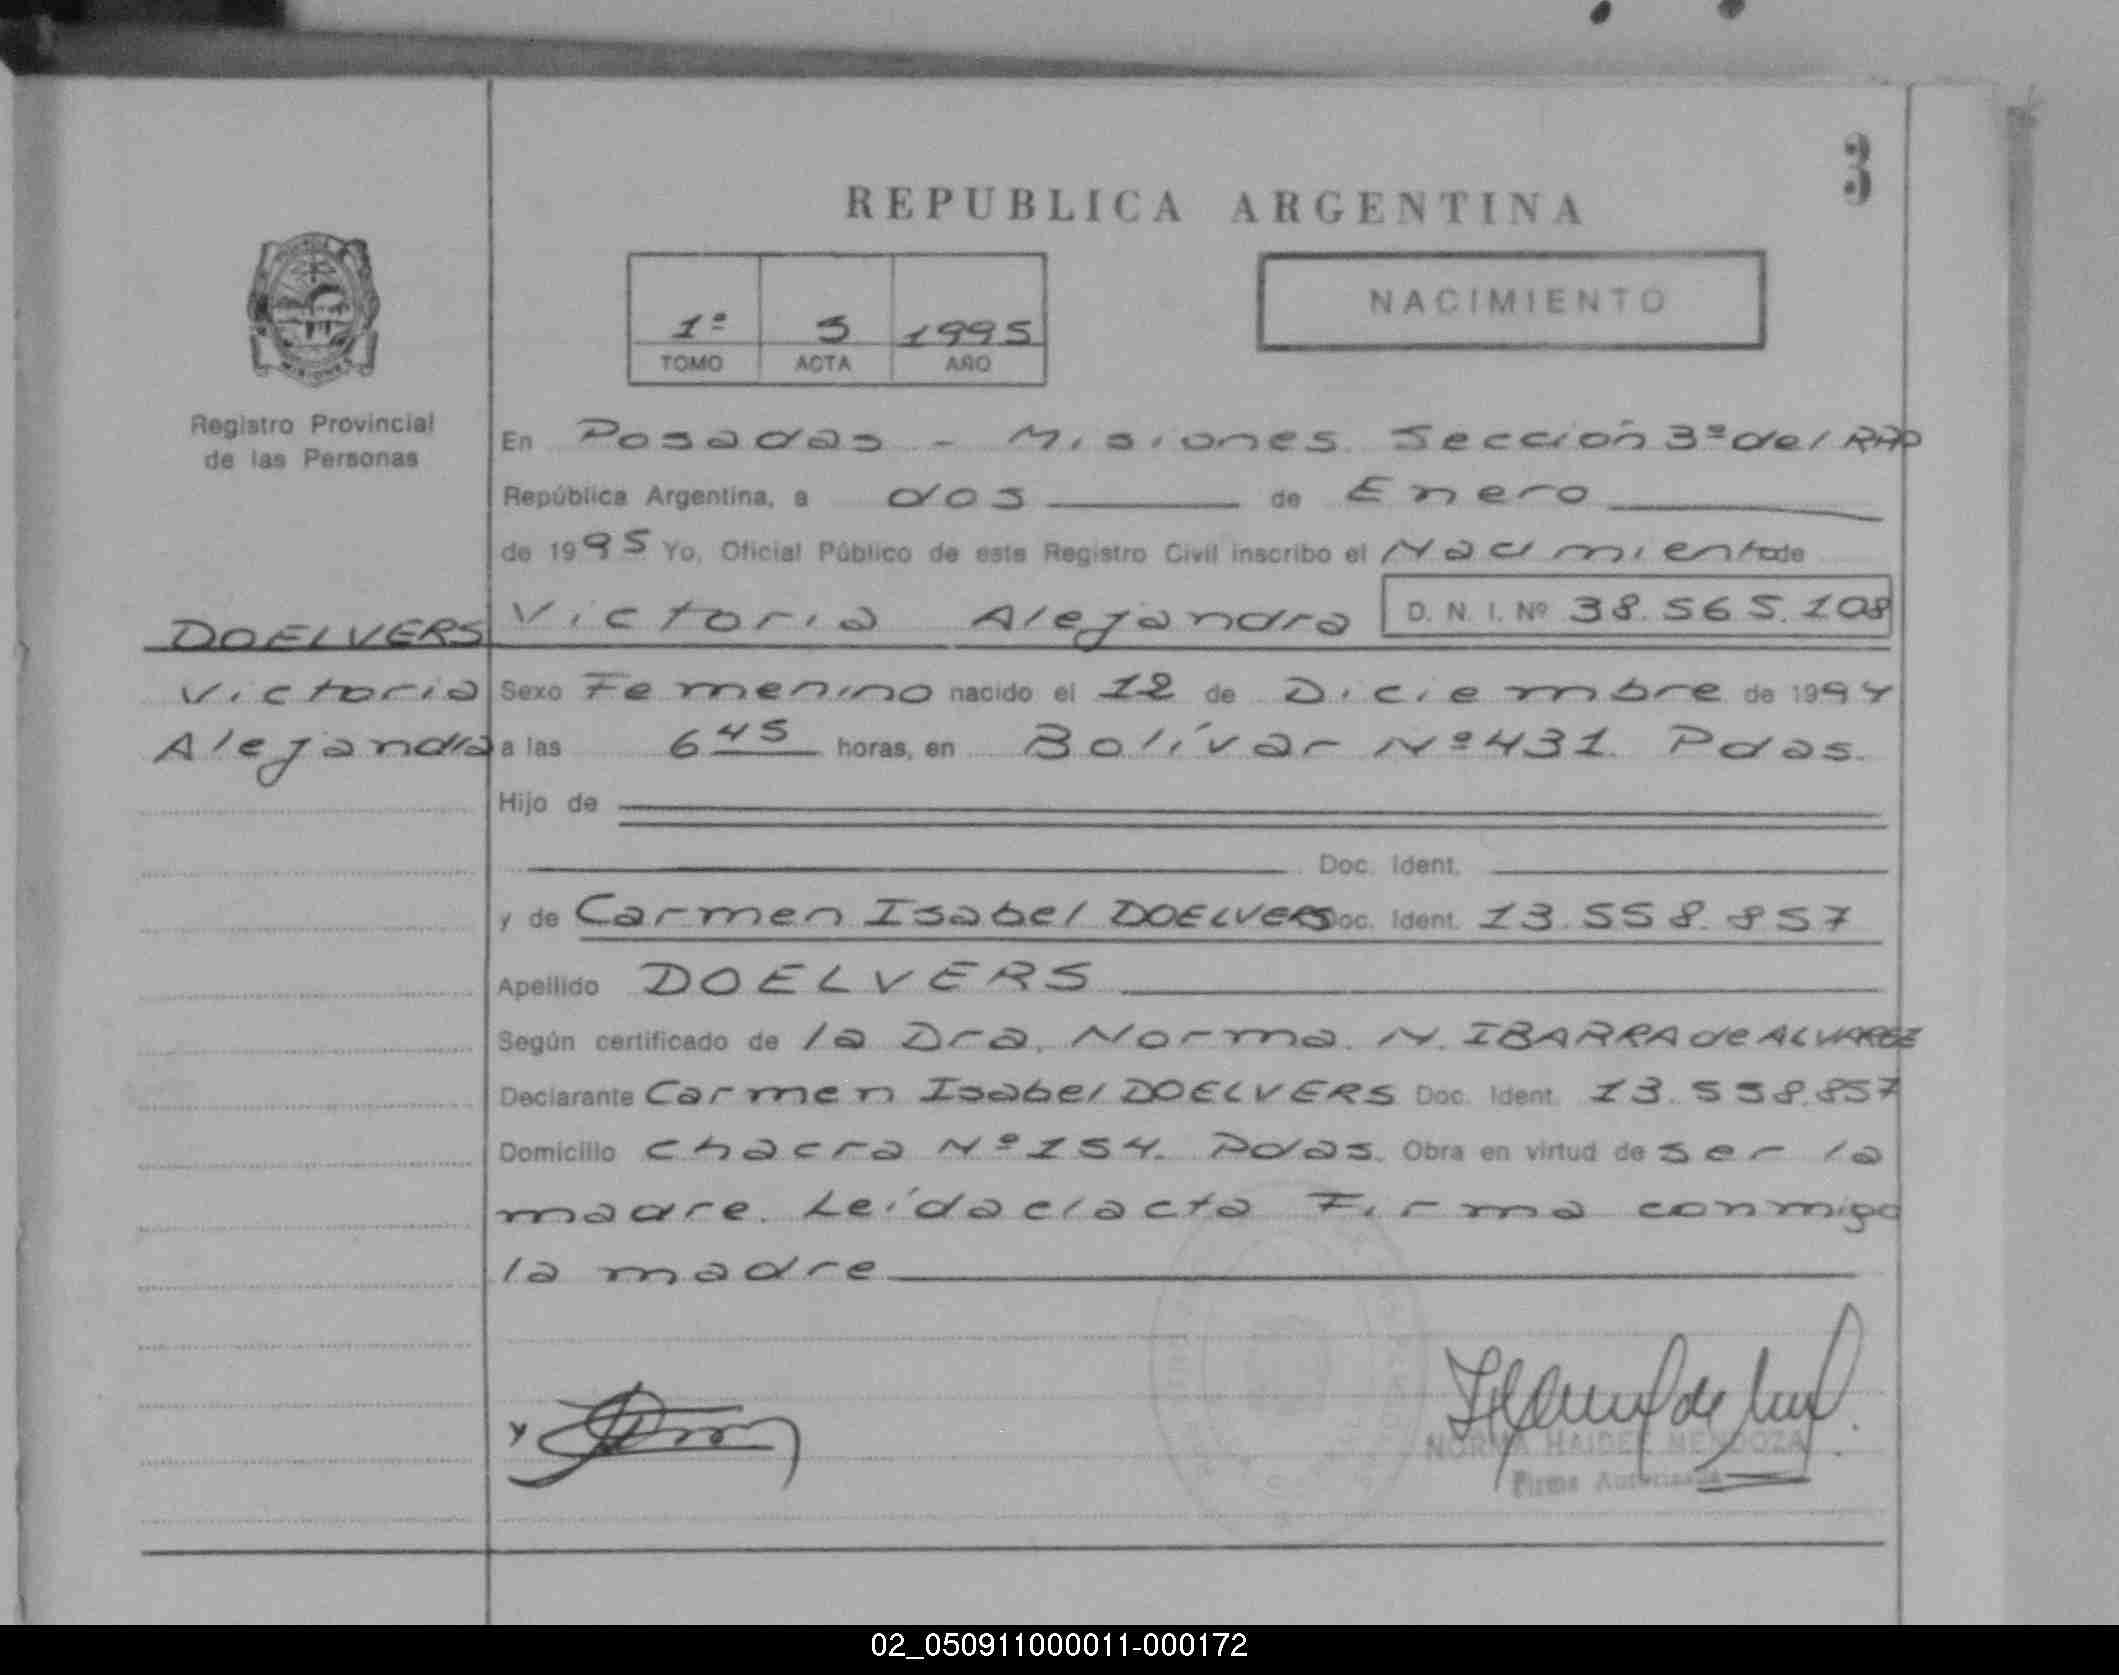 3
REPUBLICA ARGENTINA
1º 3 1995
TOMO ACTA AÑO
NACIMIENTO
Registro Provincial
de las Personas
En Posadas - Misiones. Sección 3ª del RPP
República Argentina, a dos de Enero
de 1995 Yo, Oficial Público de este Registro Civil inscribo el Nacimiento de
DOELVERS Victoria Alejandra D. N. I. Nº 38.565.108
Victoria
Alejandra
Sexo Femenino nacido el 12 de Diciembre de 1994
a las 6 45 horas, en Bolívar Nº 431. Pdas.
Hijo de
Doc. Ident.
y de Carmen Isabel DOELVERS Doc. Ident. 13.558.857
Apellido DOELVERS
Según certificado de la Dra. Norma. N. IBARRA de ALVAREZ
Declarante Carmen Isabel DOELVERS Doc. Ident. 13.558.857
Domicilio Chacra Nº 154. Pdas. Obra en virtud de ser la
madre. Leída el acta Firma conmigo
la madre
NORMA HAIDEE MENDOZA
Firma Autorizada
02_050911000011-000172